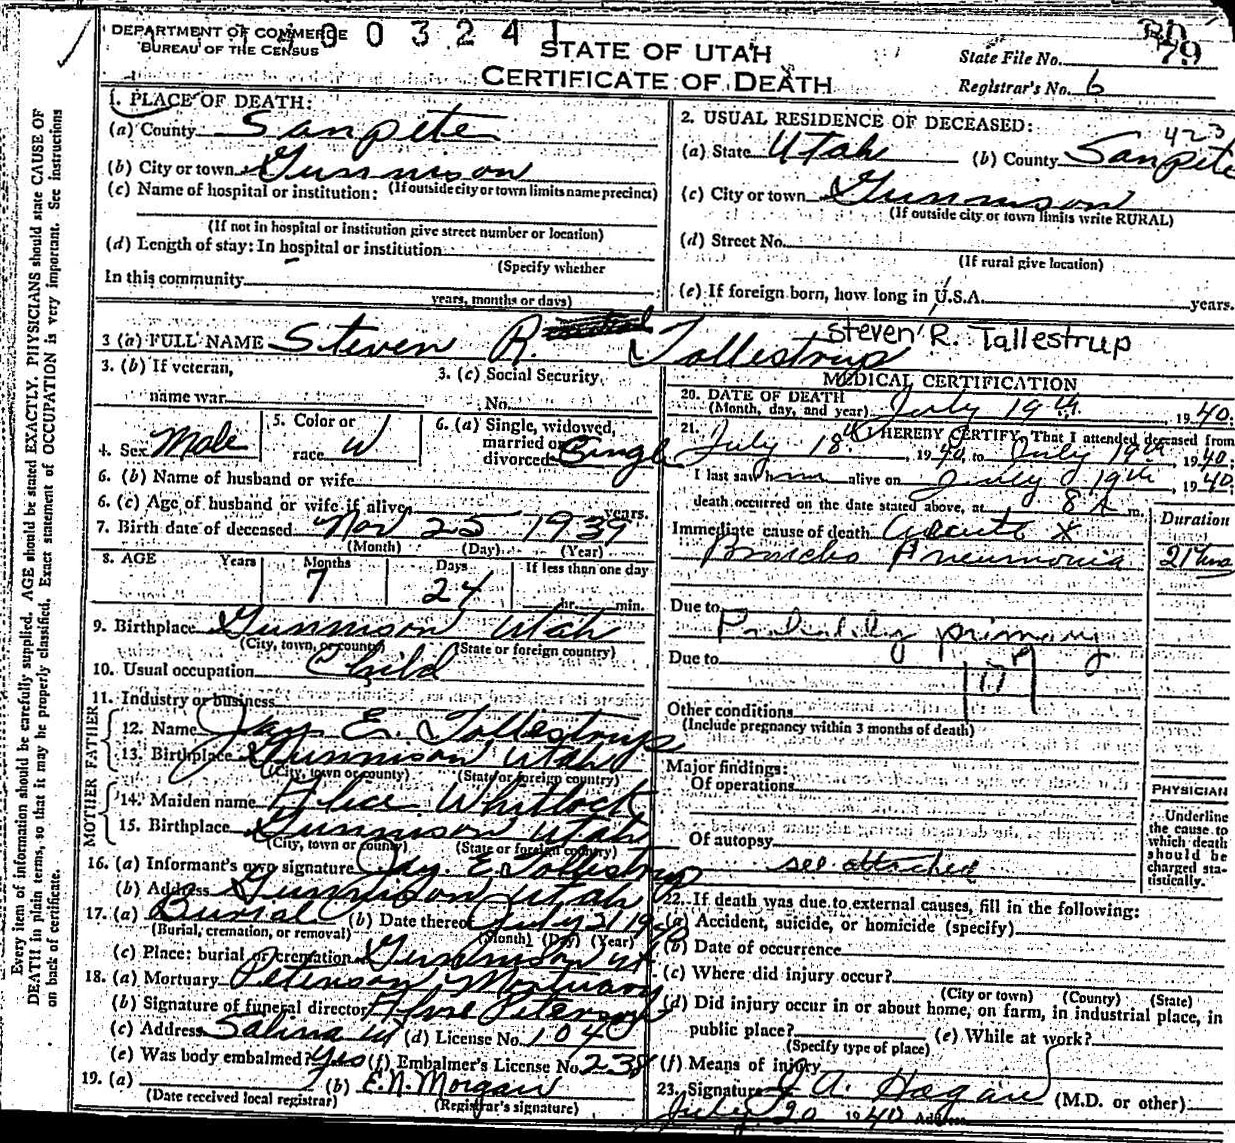 DEPARTMENT OF COMMERCE
BUREAU OF THE CENSUS
0 0 3 2 4 1
STATE OF UTAH
CERTIFICATE OF DEATH
State File No. 79
Registrar's No. 6
1. PLACE OF DEATH:
(a) County Sanpete
(b) City or town Gunnison
(c) Name of hospital or institution: (If outside city or town limits name precinct)
(If not in hospital or institution give street number or location)
(d) Length of stay: In hospital or institution
(Specify whether
In this community
years, months or days)
2. USUAL RESIDENCE OF DECEASED:
423
(a) State Utah (b) County Sanpete
(c) City or town Gunnison
(If outside city or town limits write RURAL)
(d) Street No.
(If rural give location)
(e) If foreign born, how long in U.S.A. years.
3 (a) FULL NAME Steven R. Tallestrup
Steven R. Tallestrup
3. (b) If veteran,
name war
3. (c) Social Security
No.
4. Sex Male
5. Color or
race W
6. (a) Single, widowed,
married or
divorced Single
6. (b) Name of husband or wife
6. (c) Age of husband or wife if alive years.
7. Birth date of deceased Nov 25 1939
(Month) (Day) (Year)
8. AGE Years Months Days If less than one day
7 24 hr. min.
9. Birthplace Gunnison Utah
(City, town, or county) (State or foreign country)
10. Usual occupation Child
11. Industry or business
FATHER
12. Name Jay E. Tallestrup
13. Birthplace Gunnison Utah
(City, town or county) (State or foreign country)
MOTHER
14. Maiden name Alice Whitlock
15. Birthplace Gunnison Utah
(City, town or county) (State or foreign country)
16. (a) Informant's own signature Jay. E. Tallestrup
(b) Address Gunnison Utah
17. (a) Burial (b) Date thereof July 21 19
(Burial, cremation, or removal) (Month) (Day) (Year)
(c) Place: burial or cremation Gunnison Ut
18. (a) Mortuary Peterson Mortuary
(b) Signature of funeral director Peterson
(c) Address Salina Ut (d) License No. 104
(e) Was body embalmed? Yes (f) Embalmer's License No. 238
19. (a) (b) E.N. Morgan
(Date received local registrar) (Registrar's signature)
MEDICAL CERTIFICATION
20. DATE OF DEATH
(Month, day, and year) July 19th, 1940.
21. I HEREBY CERTIFY, That I attended deceased from
July 18th, 1940, to July 19th, 1940;
I last saw him alive on July 19th, 1940;
death occurred on the date stated above, at 8 A m.
Duration
Immediate cause of death Acute X
Broncho Pneumonia 21 hrs
Due to
Probably primary
Due to
107
Other conditions
(Include pregnancy within 3 months of death)
Major findings:
Of operations
Of autopsy
see attached
PHYSICIAN
Underline
the cause to
which death
should be
charged sta-
tistically.
22. If death was due to external causes, fill in the following:
(a) Accident, suicide, or homicide (specify)
(b) Date of occurrence
(c) Where did injury occur?
(City or town) (County) (State)
(d) Did injury occur in or about home, on farm, in industrial place, in
public place? (e) While at work?
(Specify type of place)
(f) Means of injury
23. Signature J A. Hagan (M.D. or other)
July 20 1940 Address
Every item of information should be carefully supplied. AGE should be stated EXACTLY. PHYSICIANS should state CAUSE OF
DEATH in plain terms, so that it may be properly classified. Exact statement of OCCUPATION is very important. See instructions
on back of certificate.